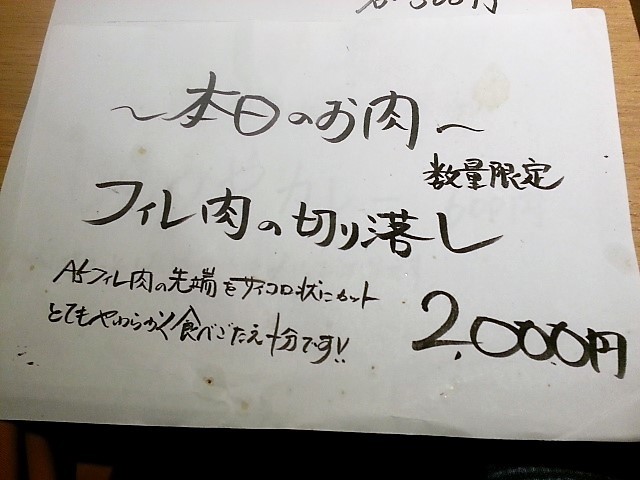 〜本日のお肉〜
数量限定
フィレ肉の切り落し
A5フィレ肉の先端をサイコロ状にカット
とてもやわらかく食べごたえ十分です!!
2,000円